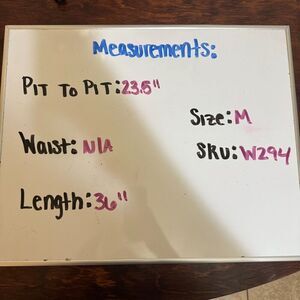 Measurements:
Pit to Pit: 23.5"
Size: M
Waist: N/A
SKU: W294
Length: 36"